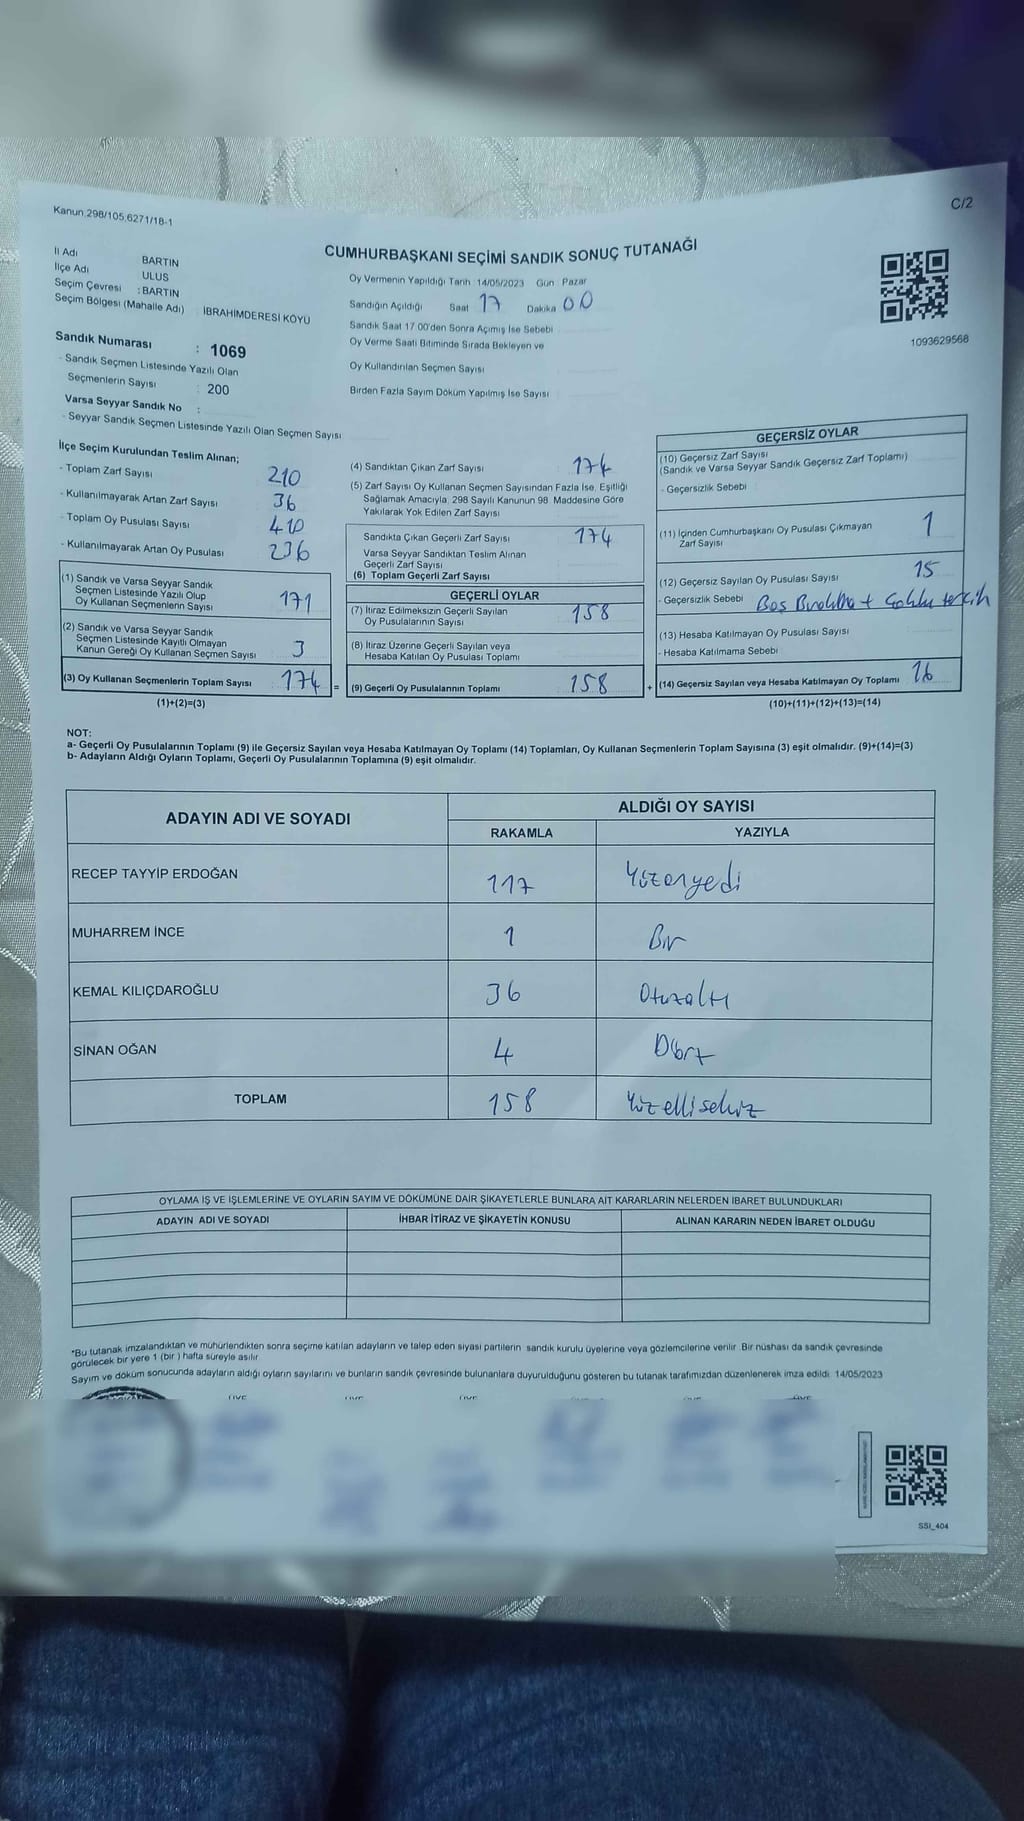 Kanun,298/105,6271/18-1
C/2
CUMHURBAŞKANI SEÇİMİ SANDIK SONUÇ TUTANAĞI
İl Adı BARTIN
İlçe Adı ULUS
Seçim Çevresi : BARTIN
Seçim Bölgesi (Mahalle Adı) İBRAHİMDERESİ KÖYÜ
Sandık Numarası : 1069
- Sandık Seçmen Listesinde Yazılı Olan
Seçmenlerin Sayısı 200
Varsa Seyyar Sandık No :
- Seyyar Sandık Seçmen Listesinde Yazılı Olan Seçmen Sayısı
Oy Vermenin Yapıldığı Tarih 14/05/2023 Gün Pazar
Sandığın Açıldığı Saat 17 Dakika 00
Sandık Saat 17 00'den Sonra Açımış İse Sebebi
Oy Verme Saati Bitiminde Sırada Bekleyen ve
Oy Kullandırılan Seçmen Sayısı
Birden Fazla Sayım Döküm Yapılmış İse Sayısı
1093629568
İlçe Seçim Kurulundan Teslim Alınan;
- Toplam Zarf Sayısı 210
- Kullanılmayarak Artan Zarf Sayısı 36
- Toplam Oy Pusulası Sayısı 410
- Kullanılmayarak Artan Oy Pusulası 236
(1) Sandık ve Varsa Seyyar Sandık
Seçmen Listesinde Yazılı Olup
Oy Kullanan Seçmenlerin Sayısı 171
(2) Sandık ve Varsa Seyyar Sandık
Seçmen Listesinde Kayıtlı Olmayan
Kanun Gereği Oy Kullanan Seçmen Sayısı 3
(3) Oy Kullanan Seçmenlerin Toplam Sayısı 174 =
(1)+(2)=(3)
(4) Sandıktan Çıkan Zarf Sayısı 174
(5) Zarf Sayısı Oy Kullanan Seçmen Sayısından Fazla İse, Eşitliği
Sağlamak Amacıyla, 298 Sayılı Kanunun 98 Maddesine Göre
Yakılarak Yok Edilen Zarf Sayısı
Sandıkta Çıkan Geçerli Zarf Sayısı 174
Varsa Seyyar Sandıktan Teslim Alınan
Geçerli Zarf Sayısı
(6) Toplam Geçerli Zarf Sayısı
GEÇERLİ OYLAR
(7) İtiraz Edilmeksizin Geçerli Sayılan
Oy Pusulalarının Sayısı 158
(8) İtiraz Üzerine Geçerli Sayılan veya
Hesaba Katılan Oy Pusulası Toplamı
(9) Geçerli Oy Pusulalarının Toplamı 158 +
GEÇERSİZ OYLAR
(10) Geçersiz Zarf Sayısı
(Sandık ve Varsa Seyyar Sandık Geçersiz Zarf Toplamı)
- Geçersizlik Sebebi
(11) İçinden Cumhurbaşkanı Oy Pusulası Çıkmayan
Zarf Sayısı 1
(12) Geçersiz Sayılan Oy Pusulası Sayısı 15
- Geçersizlik Sebebi Boş Bırakılma + Çoklu tercih
(13) Hesaba Katılmayan Oy Pusulası Sayısı
- Hesaba Katılmama Sebebi
(14) Geçersiz Sayılan veya Hesaba Katılmayan Oy Toplamı 16
(10)+(11)+(12)+(13)=(14)
NOT:
a- Geçerli Oy Pusulalarının Toplamı (9) ile Geçersiz Sayılan veya Hesaba Katılmayan Oy Toplamı (14) Toplamları, Oy Kullanan Seçmenlerin Toplam Sayısına (3) eşit olmalıdır. (9)+(14)=(3)
b- Adayların Aldığı Oyların Toplamı, Geçerli Oy Pusulalarının Toplamına (9) eşit olmalıdır.
ADAYIN ADI VE SOYADI ALDIĞI OY SAYISI
RAKAMLA YAZIYLA
RECEP TAYYİP ERDOĞAN 117 Yüzonyedi
MUHARREM İNCE 1 Bir
KEMAL KILIÇDAROĞLU 36 Otuzaltı
SİNAN OĞAN 4 Dört
TOPLAM 158 Yüzellisekiz
OYLAMA İŞ VE İŞLEMLERİNE VE OYLARIN SAYIM VE DÖKÜMÜNE DAİR ŞİKAYETLERLE BUNLARA AİT KARARLARIN NELERDEN İBARET BULUNDUKLARI
ADAYIN ADI VE SOYADI İHBAR İTİRAZ VE ŞİKAYETİN KONUSU ALINAN KARARIN NEDEN İBARET OLDUĞU
*Bu tutanak imzalandıktan ve mühürlendikten sonra seçime katılan adayların ve talep eden siyasi partilerin sandık kurulu üyelerine veya gözlemcilerine verilir. Bir nüshası da sandık çevresinde
görülecek bir yere 1 (bir ) hafta süreyle asılır.
Sayım ve döküm sonucunda adayların aldığı oyların sayılarını ve bunların sandık çevresinde bulunanlara duyurulduğunu gösteren bu tutanak tarafımızdan düzenlenerek imza edildi. 14/05/2023
SSI_404